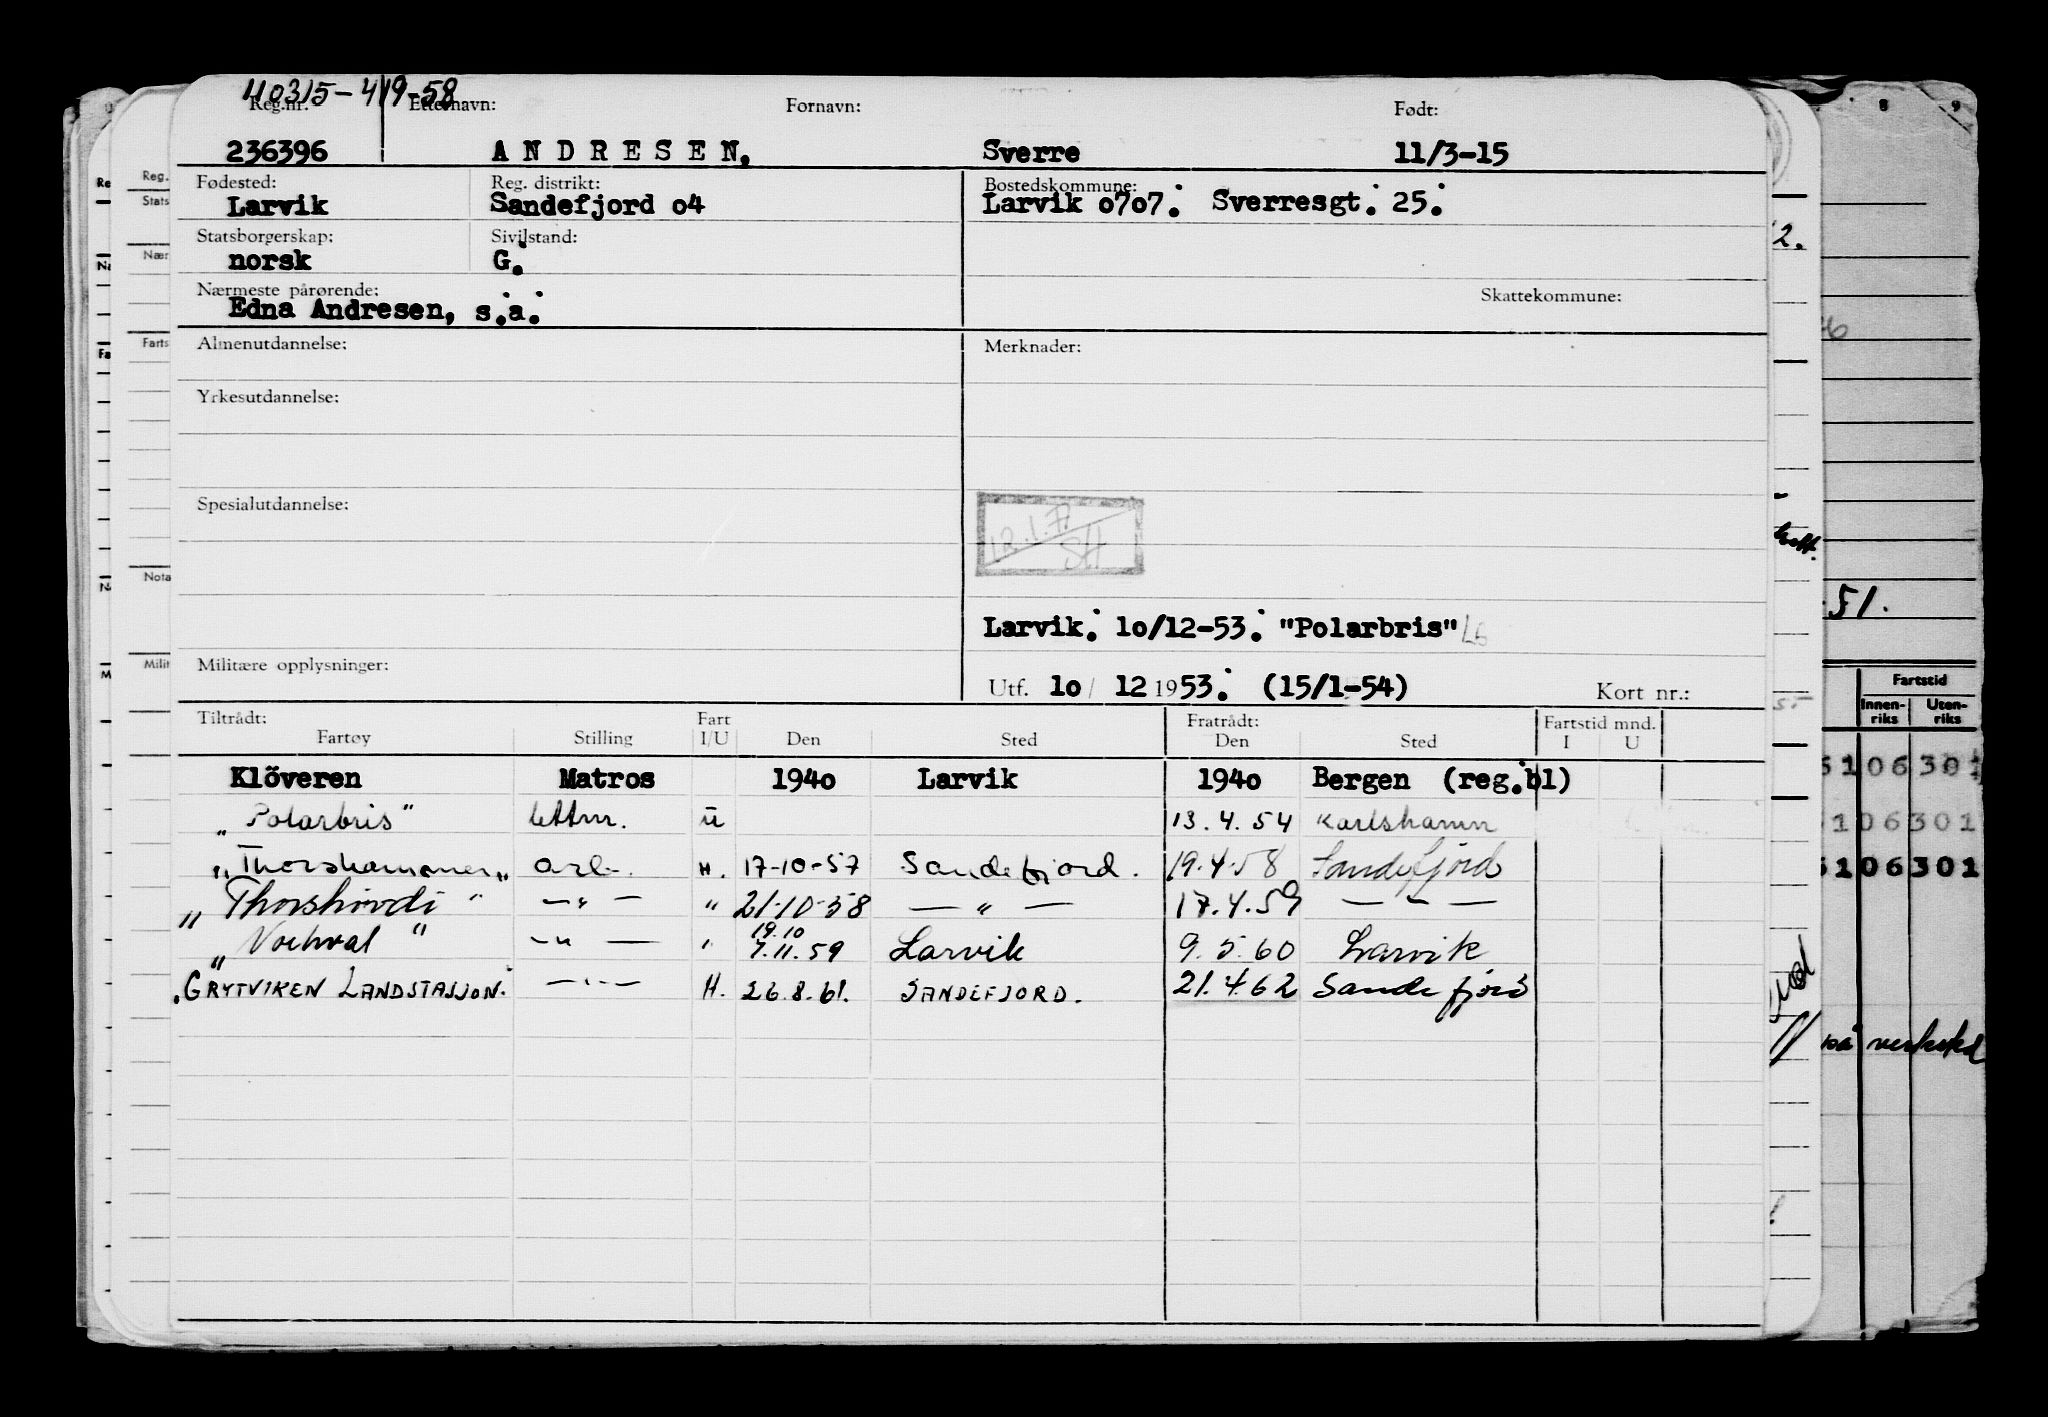 110315-419-58
Reg.nr. Etternavn: Fornavn: Født:
236396 ANDRESEN, Sverre 11/3-15
Fødested: Reg. distrikt: Bostedskommune:
Larvik Sandefjord o4 Larvik o7o7. Sverresgt. 25.
Statsborgerskap: Sivilstand:
norsk G.
Nærmeste pårørende: Skattekommune:
Edna Andresen, s.a.
Almenutdannelse: Merknader:
Yrkesutdannelse:
Spesialutdannelse:
Larvik. 1o/12-53. "Polarbris"
Militære opplysninger:
Utf. 1o/ 12 1953. (15/1-54) Kort nr.:
Tiltrådt: Fart Fratrådt: Fartstid mnd.
Fartøy Stilling I/U Den Sted Den Sted I U
Klöveren Matros 194o Larvik 194o Bergen (reg.bl)
"Polarbris" lettm. u 13.4.54 Karlshamn
"Thorshammer" arb. H. 17-10-57 Sandefjord. 19.4-58 Sandefjord
"Thorshövdi" — " — " 21-10-58 — " — 17.4.59 — " —
19.10
"Norhval" — " — " 7.11.59 Larvik 9.5.60 Larvik
"GRYTVIKEN LANDSTASJON" — " — H. 26.8.61. SANDEFJORD. 21.4.62 Sandefjord
8 9
Reg.
Stats
Nær
Farts
Nota
Milit
51.
Fartstid
Innen-riks Uten-riks
5106301
5106301
5106301
på verksted